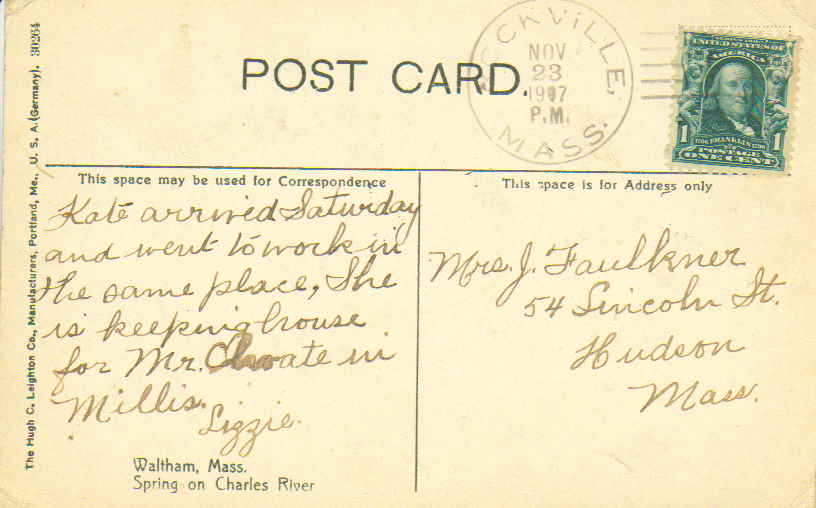 The Hugh C. Leighton Co., Manufacturers, Portland, Me., U. S. A. (Germany). 30264
POST CARD.
OCKVILLE,
NOV
23
1907
P.M.
MASS.
UNITED STATES OF
AMERICA
1 1
1706 FRANKLIN 1790
POSTAGE
ONE CENT
This space may be used for Correspondence
Kate arrived Saturday
and went to work in
the same place, She
is keeping house
for Mr. Choate in
Millis.
Lizzie.
Waltham, Mass.
Spring on Charles River
This space is for Address only
Mrs. J. Faulkner
54 Lincoln St.
Hudson
Mass.